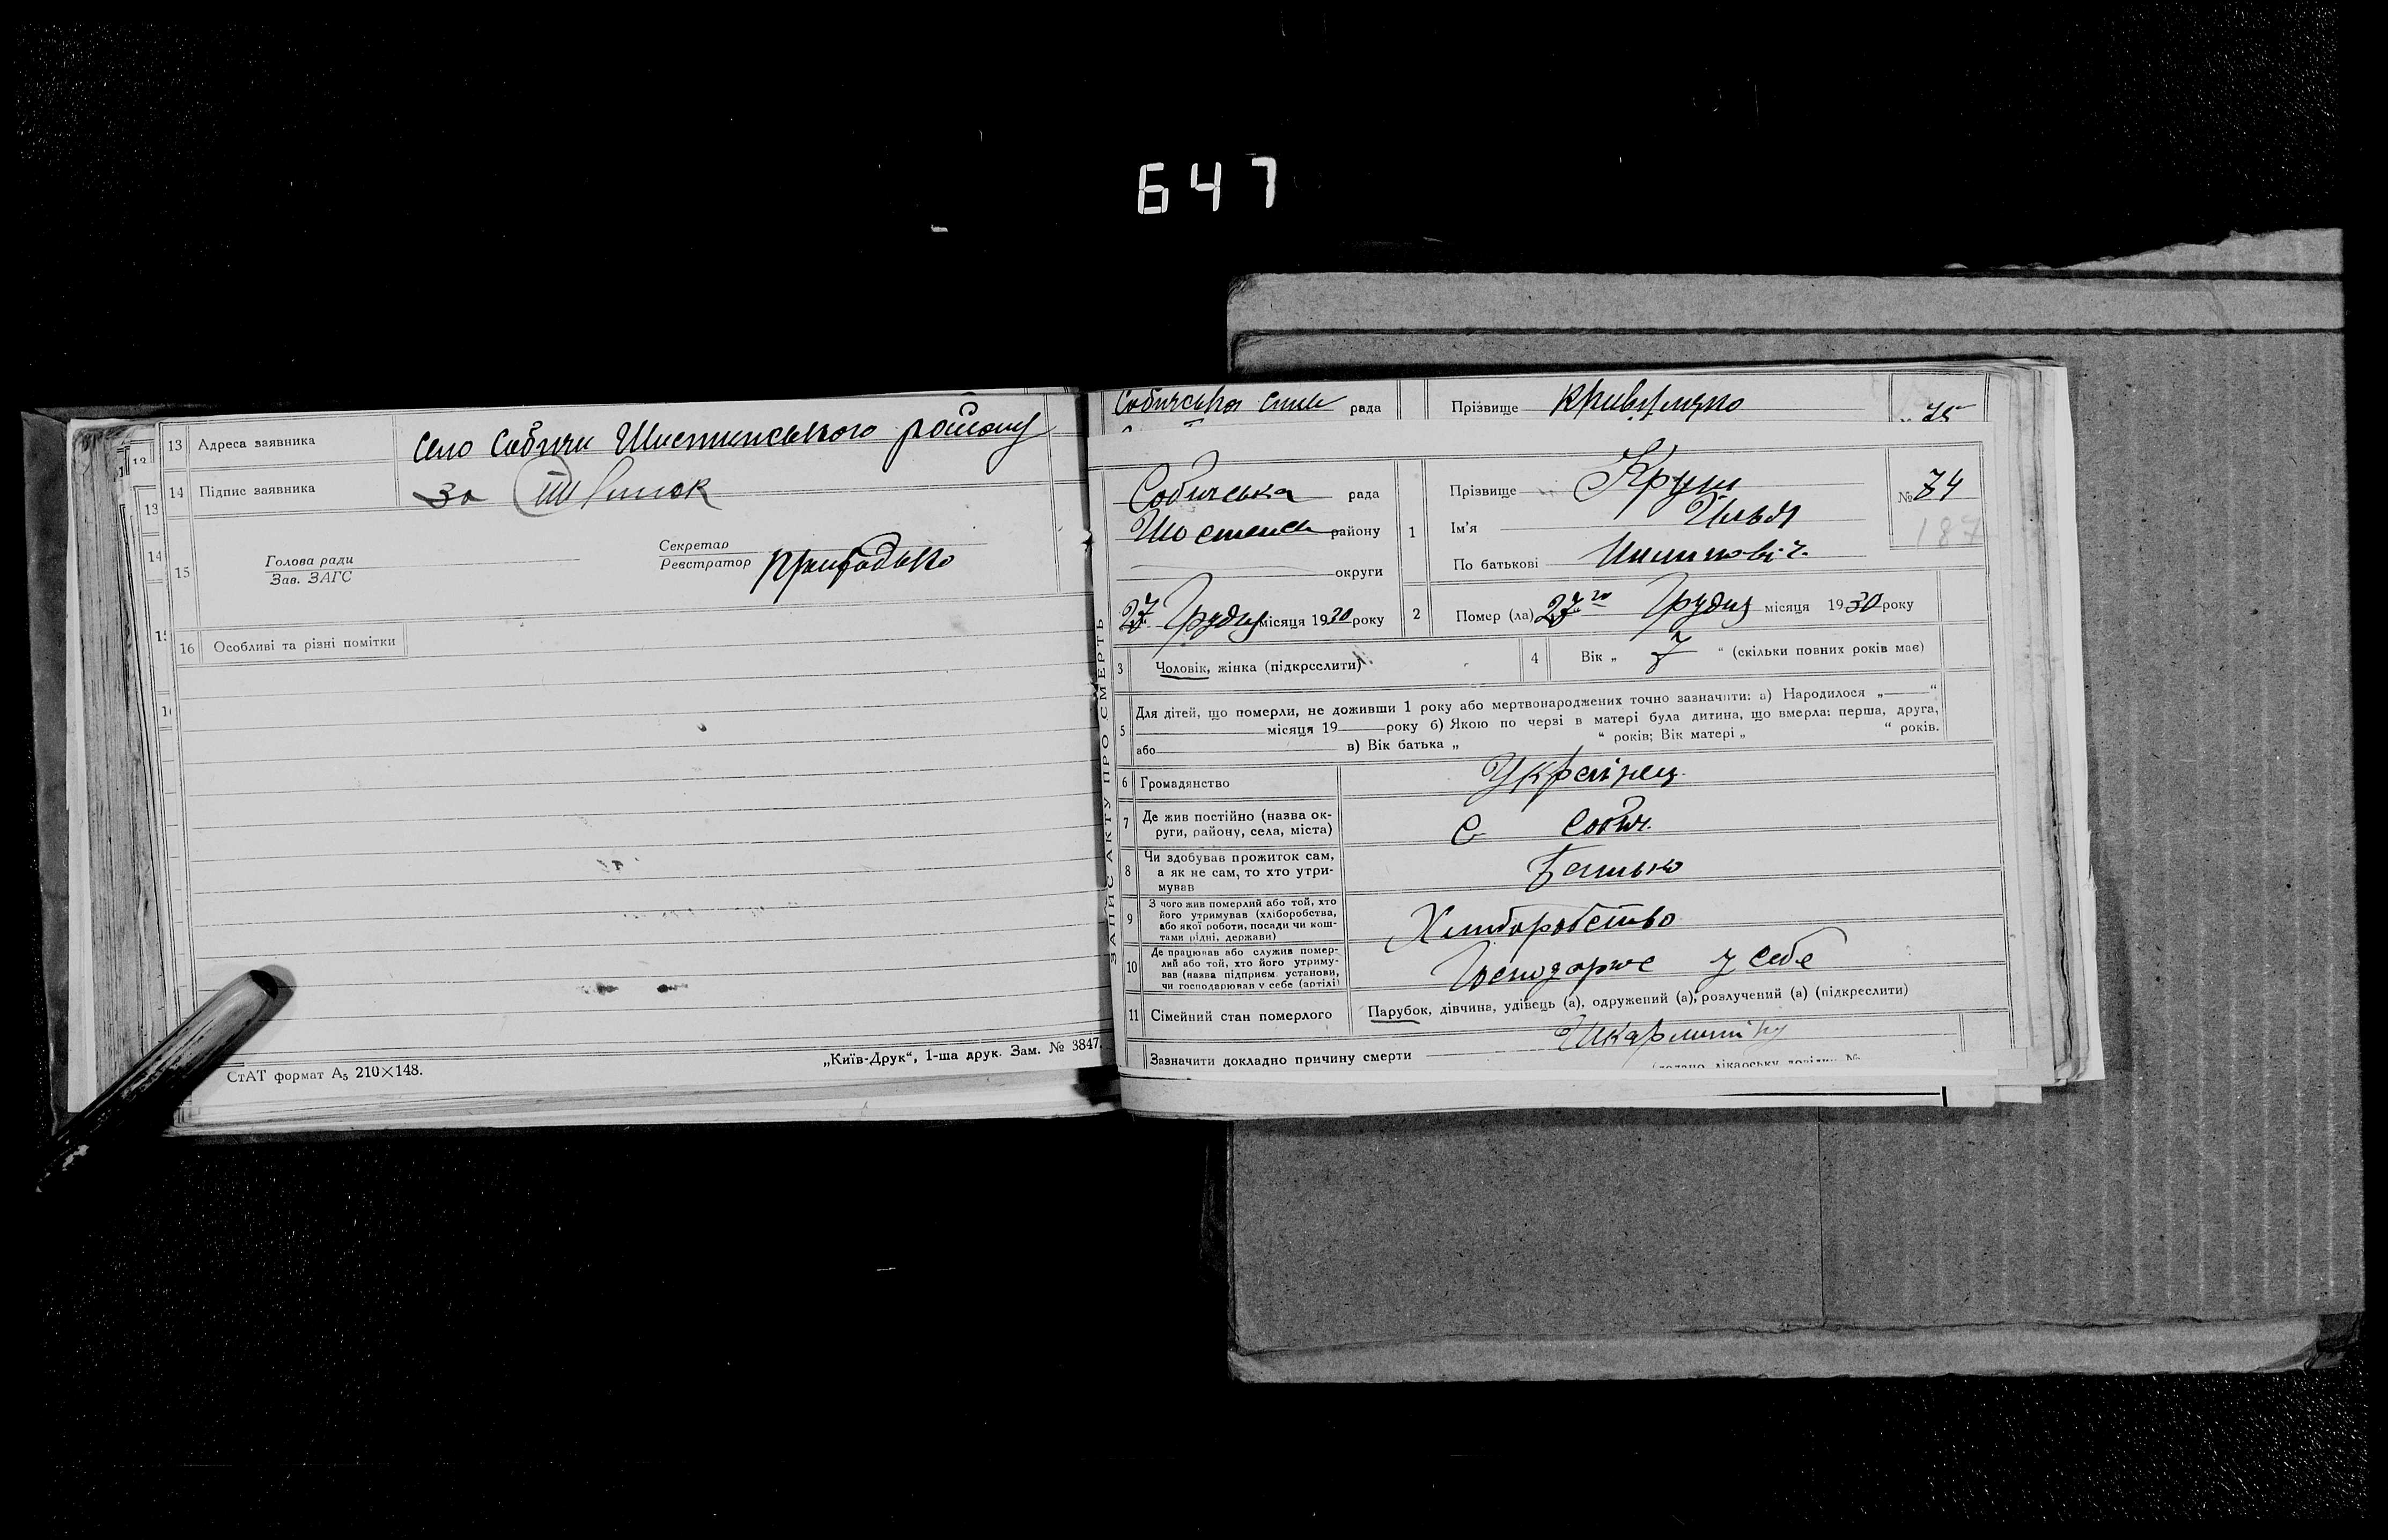 647
13 Адреса заявника село Собичи Шостинського району
14 Підпис заявника За
15 Голова ради
Зав. ЗАГС
Секретар
Реєстратор
16 Особливі та різні помітки
СтАТ формат А₅ 210×148.
„Київ-Друк“, 1-ша друк. Зам. № 3847.
Собичська рада
Прізвище
75
ЗАПИС АКТУ ПРО СМЕРТЬ
Собичська рада
района району
округи
27 Грудня місяця 1930 року
1 Прізвище Круш
Ім'я Ілья
По батькові
№ 74
187
2 Помер (ла) 27го Грудня місяця 1930 року
3 Чоловік, жінка (підкреслити)
4 Вік „ 7 “ (скільки повних років має)
5 Для дітей, що померли, не доживши 1 року або мертвонароджених точно зазначити: а) Народилося „ “
місяця 19 року б) Якою по черзі в матері була дитина, що вмерла: перша, друга,
або в) Вік батька „ “ років; Вік матері „ “ років.
6 Громадянство Українец
7 Де жив постійно (назва округи, району, села, міста) С Собич.
8 Чи здобував прожиток сам,
а як не сам, то хто утримував Батько
9 З чого жив померлий або той, хто
його утримував (хліборобства,
або якої роботи, посади чи коштами рідні, держави) Хліборобство
10 Де працював або служив померлий або той, хто його утримував (назва підприєм. установи,
чи господарював у себе (артілі) Господарює у себе
11 Сімейний стан померлого Парубок, дівчина, удівець (а), одружений (а), розлучений (а) (підкреслити)
Зазначити докладно причину смерти Шкарлатіну